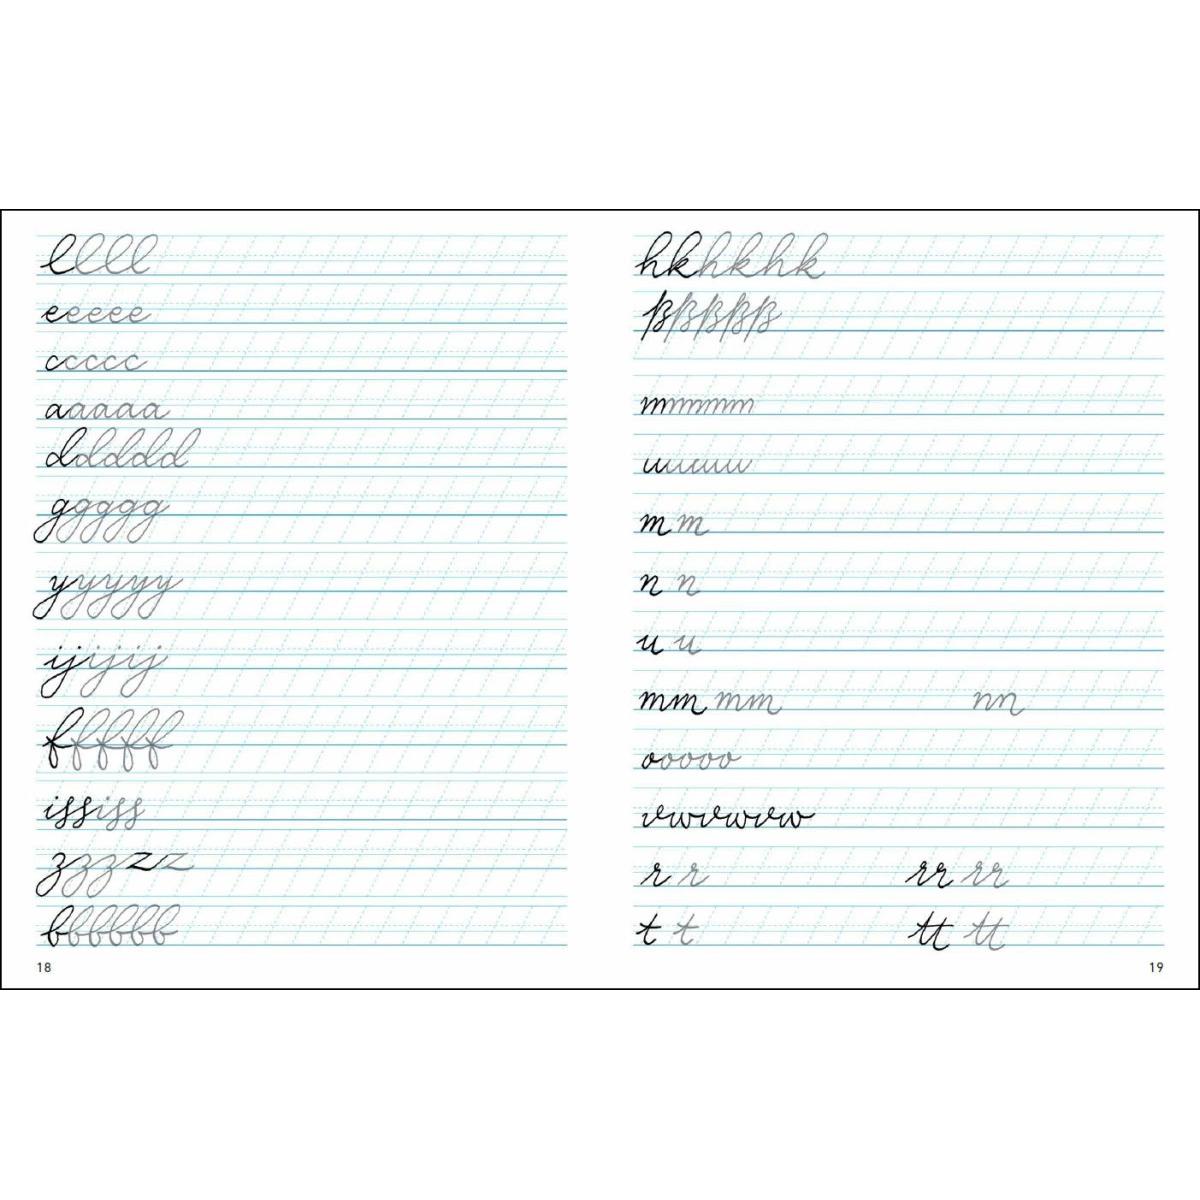 llll
eeeee
ccccc
aaaaa
ddddd
ggggg
yyyyy
ijijij
fffff
ississ
zzzzz
bbbbbb
18
hkhkhk
ßßßßß
mmmm
uuuu
m m
n n
u u
mm mm nn
ooooo
vwvwvw
r r rr rr
t t tt tt
19